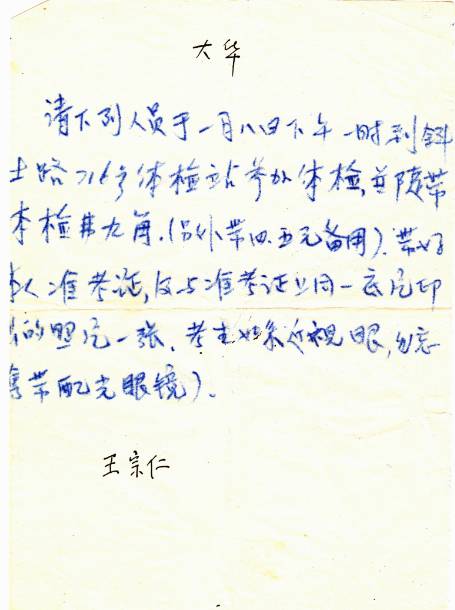 大华
请下列人员于一月八日下午一时到斜
土路716号体检站参加体检,并随带
体检费九角.(另外带四.五元备用).带好
本人准考证,及与准考证上同一底片印
的照片一张.考生如系近视眼,勿忘
带配光眼镜).
王宗仁